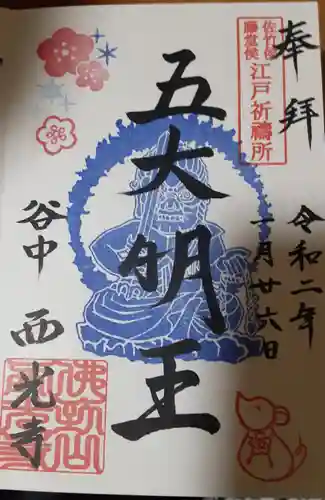 奉拝
佐竹侯
藤堂侯
江戸祈禱所
令和二年
一月廿六日
五大明王
谷中
西光寺